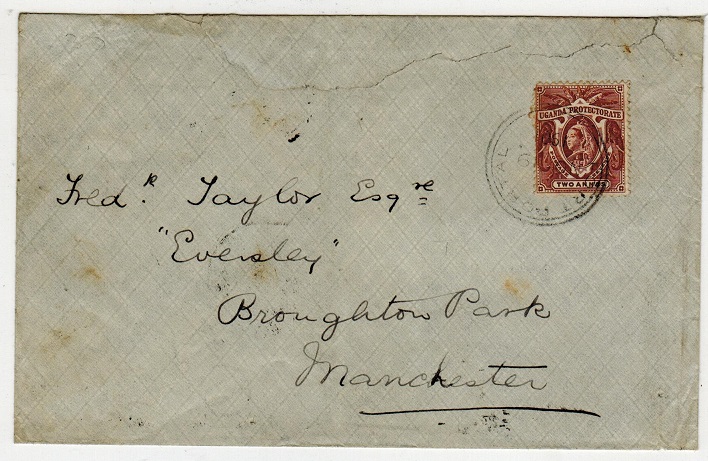 UGANDA PROTECTORATE
TWO ANNAS
PORTAL
Fred.k Taylor Esq.re
"Eversley"
Broughton Park
Manchester